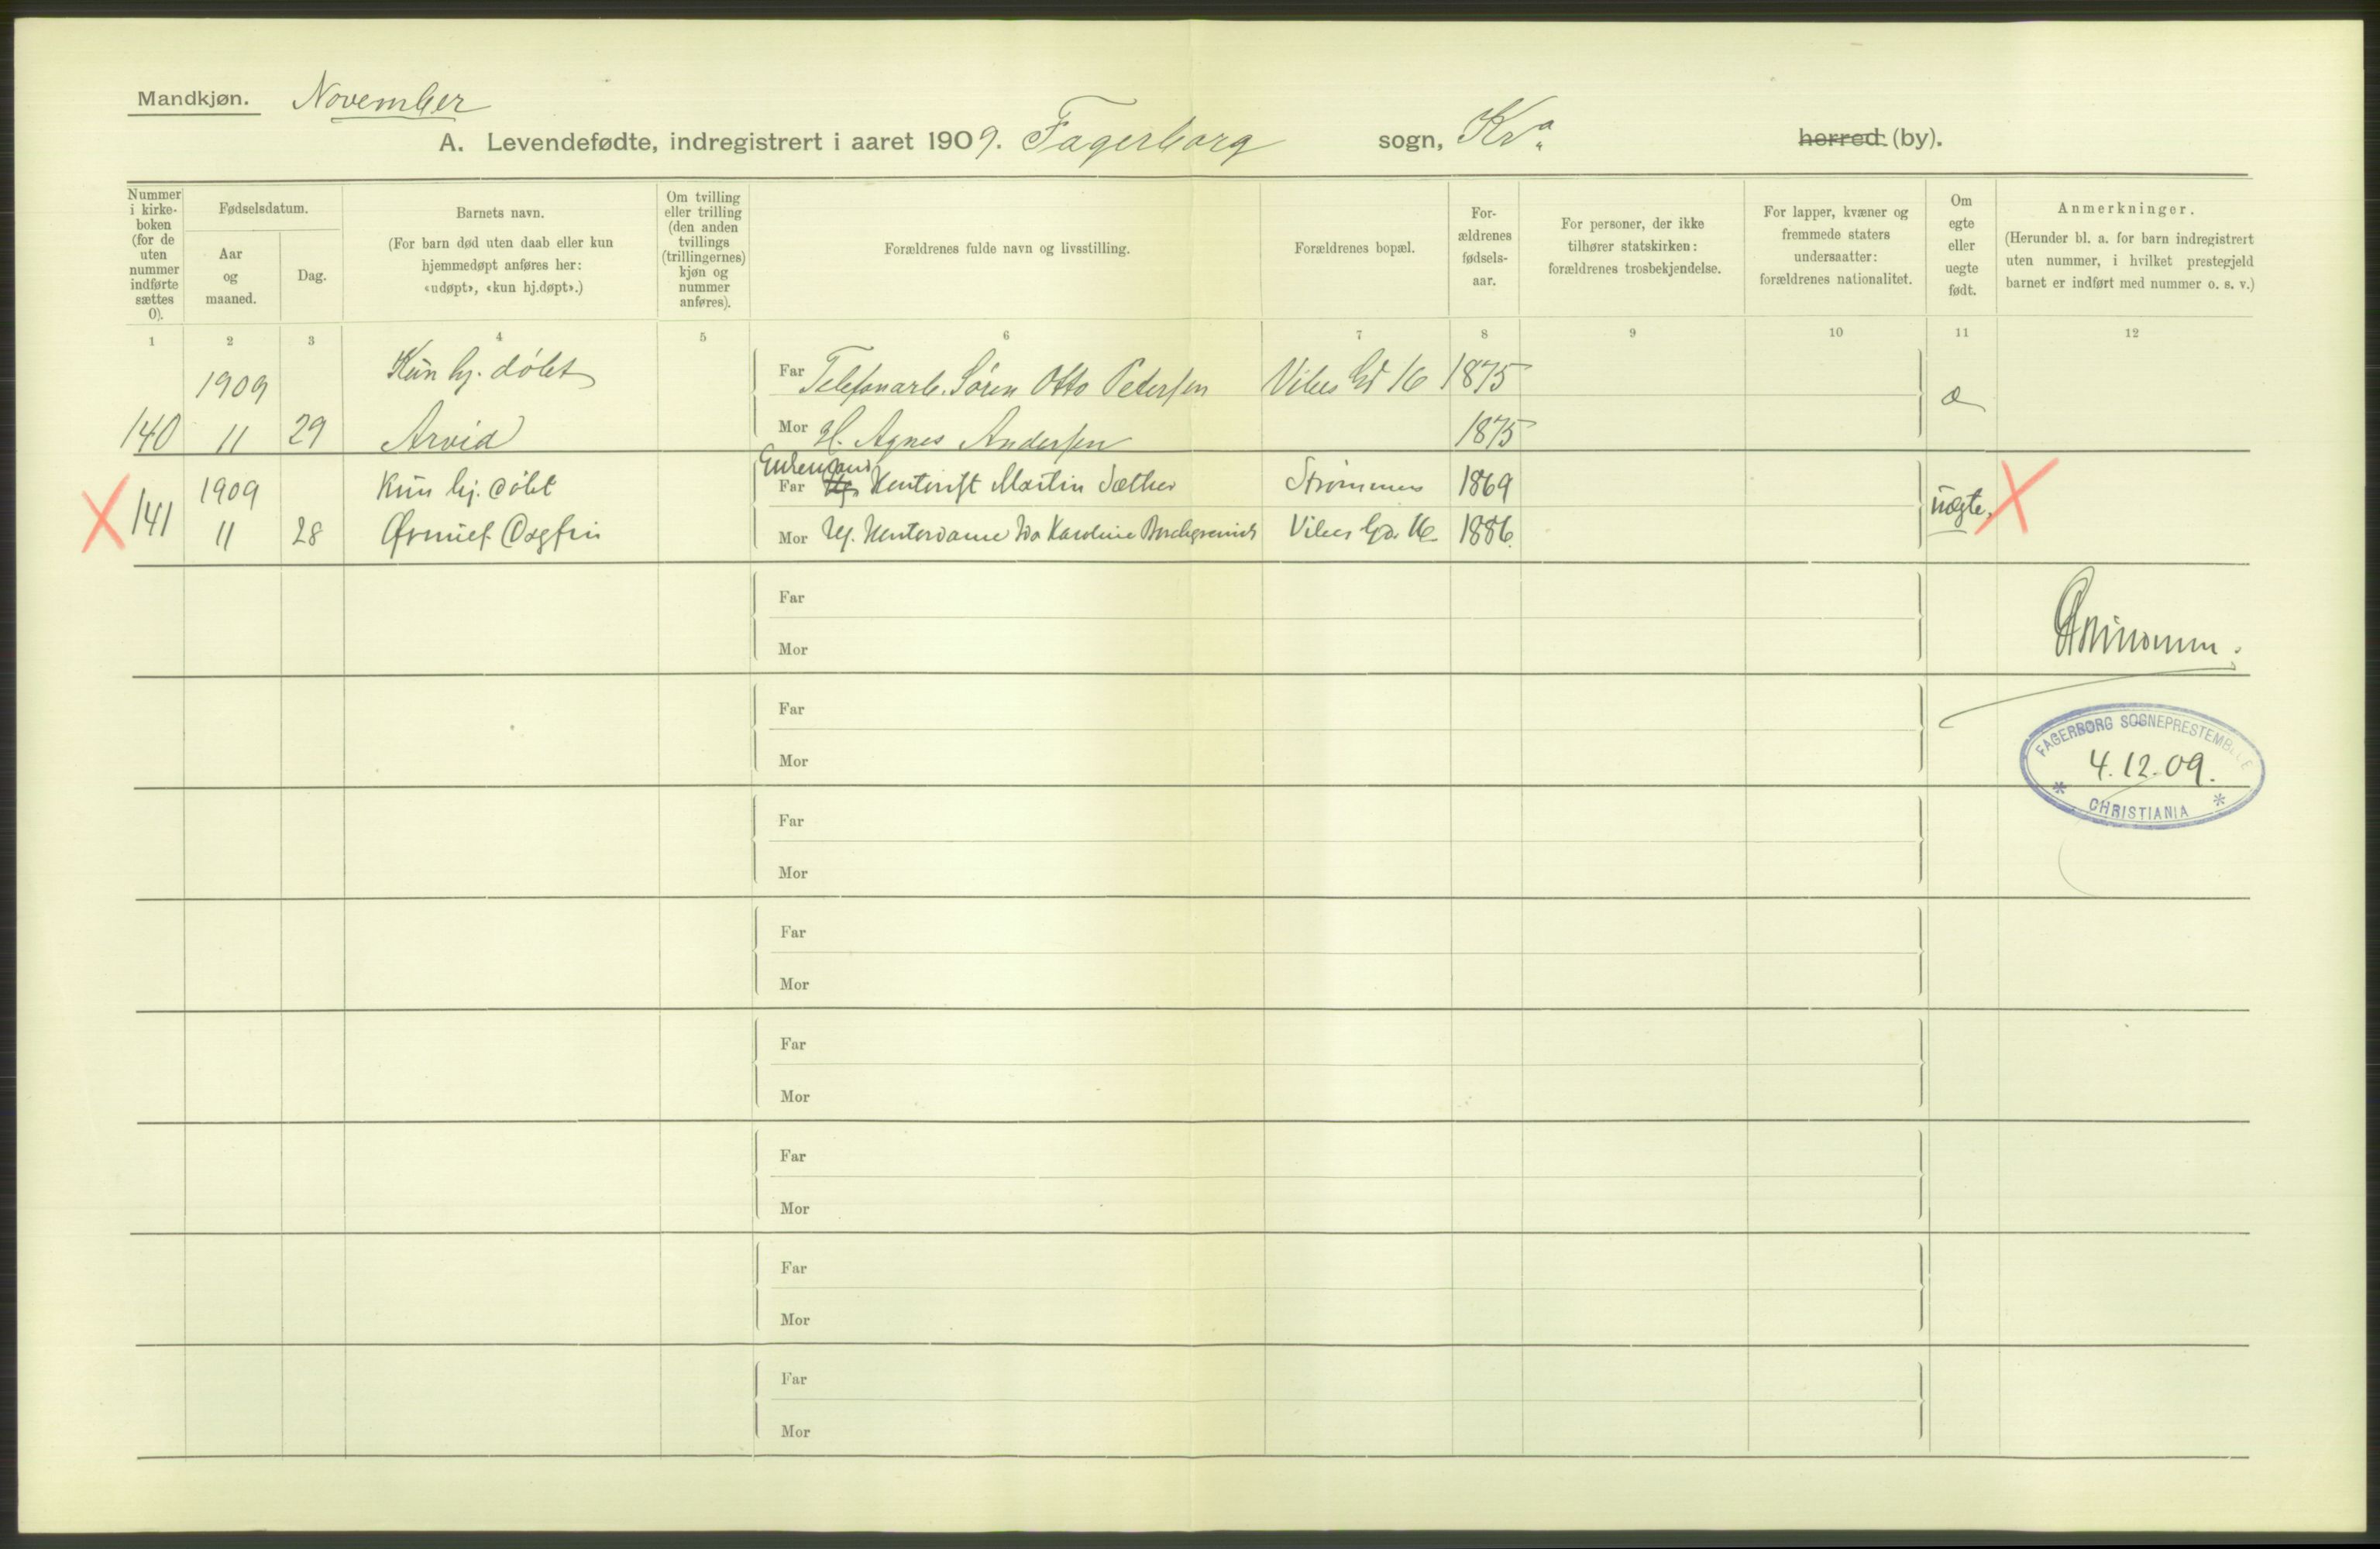 Mandkjøn. November
A. Levendefødte, indregistrert i aaret 1909. Fagerborg sogn, Kr.a herred (by).
Nummer i kirke-boken (for de uten nummer indførte sættes 0).
Fødselsdatum.
Aar og maaned.
Dag.
Barnets navn.
(For barn død uten daab eller kun
hjemmedøpt anføres her:
«udøpt», «kun hj.døpt».)
Om tvilling
eller trilling
(den anden
tvillings
(trillingernes)
kjøn og
nummer
anføres).
Forældrenes fulde navn og livsstilling.
Forældrenes bopæl.
For-
ældrenes
fødsels-
aar.
For personer, der ikke
tilhører statskirken:
forældrenes trosbekjendelse.
For lapper, kvæner og
fremmede staters
undersaatter:
forældrenes nationalitet.
Om
egte
eller
uegte
født.
Anmerkninger.
(Herunder bl. a. for barn indregistrert
uten nummer, i hvilket prestegjeld
barnet er indført med nummer o. s. v.)
1 2 3 4 5 6 7 8 9 10 11 12
1909 Kun hj. døbt Far Telefonarb. Søren Otto Petersen Vibes Gd 16 1875 æ
140 11 29 Arvid Mor H. Agnes Andersen 1875
Enkemand
1909 Kun hj. døbt Far Kontorist Martin Sæther Strømmen 1869 uægte.
141 11 28 Dagfin Mor Ug. Kontordame Ida Karoline Vibes Gd. 16 1886.
Far
Mor
Far
Mor
FAGERBORG SOGNEPRESTEMBEDE
4.12.09.
CHRISTIANIA
Far
Mor
Far
Mor
Far
Mor
Far
Mor
Far
Mor
Far
Mor